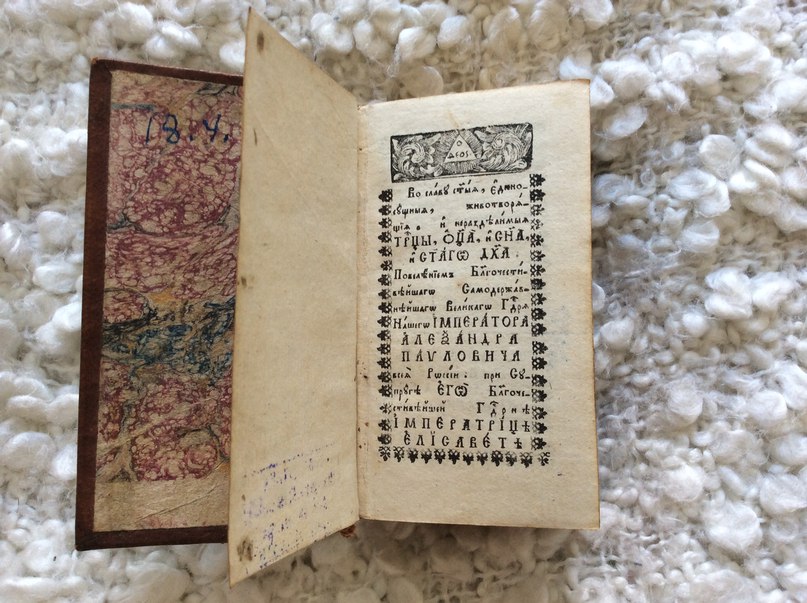 18.4.
Ѳ
ѲЕОС
Во сла́ву ст҃ы́ѧ, є҆дино-
сꙋ́щныѧ, животворѧ́-
щїѧ, и҆ нераздѣли́мыѧ
ТРЦ҃Ы, ОЦ҃А̀, и҆ СН҃А,
и҆ СТ҃А́ГѠ ДХ҃А:
Повелѣ́нїемъ Бл҃гочести́-
вѣйшагѡ Самодержав-
нѣйшагѡ Великагѡ Гдⷭ҇рѧ̀
Нашегѡ І҆МПЕРА́ТОРА
А҆ЛЕѮА́НДРА
ПА́ѴЛОВИЧА
всеѧ̀ Рѡссі́и: при Сꙋ-
прꙋ́гѣ Є҆ГѠ̀ Бл҃гоче-
сти́вѣйшей Гдⷭ҇рнѣ
І҆МПЕРАТРИ́ЦѢ
Є҆ЛІСАВЕ́ТѢ